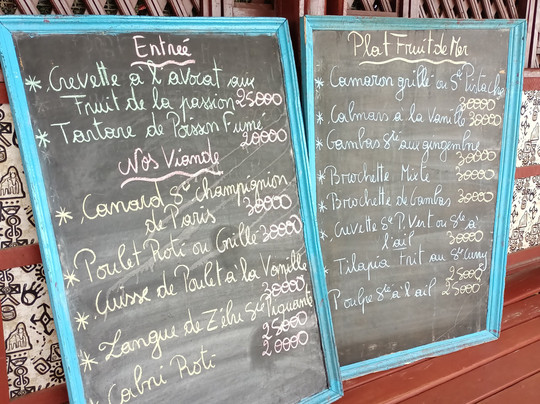 Entreé
* Crevette a l'avocat aux
Fruit de la passion 25000
* Tartare de Poisson Fumé
20000
Nos Viande
* Canard Sce champignon
de Paris 30000
* Poulet Roti ou Grille 30000
* Cuisse de Poulet a la Vanille
30000
* Langue de Zébu Sce Piquante
25000
* Cabri Roti 20000
Plat Fruit de Mer
* Camaron grillé ou Sce Pistache
30000
* Calmars a la Vanille 30000
* Gambas Sce au gingembre
30000
* Brochette Mixte 30000
* Brochette de Gambas 30000
* Crevette Sce P. Vert ou Sce a
l'ail 30000
* Tilapia Frit au Sce Curry
25000
* Poulpe Sce a l'ail 25000